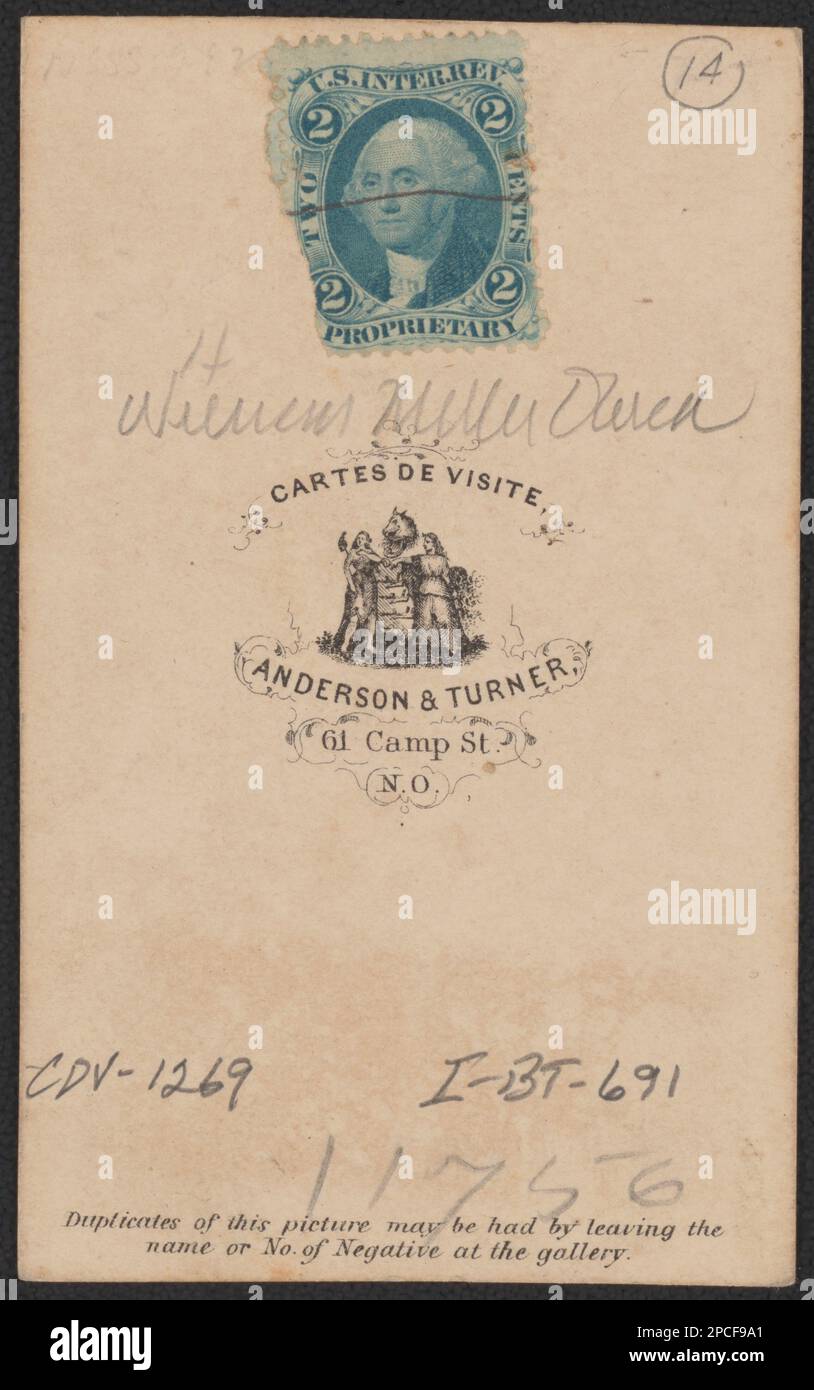 14
U.S. INTER. REV.
2 2
TWO CENTS
2 2
PROPRIETARY
CARTES DE VISITE,
ANDERSON & TURNER,
61 Camp St.
N.O.
CDV-1269 I-BT-691
11756
Duplicates of this picture may be had by leaving the
name or No. of Negative at the gallery.
alamy
Image ID: 2PCF9A1
www.alamy.com